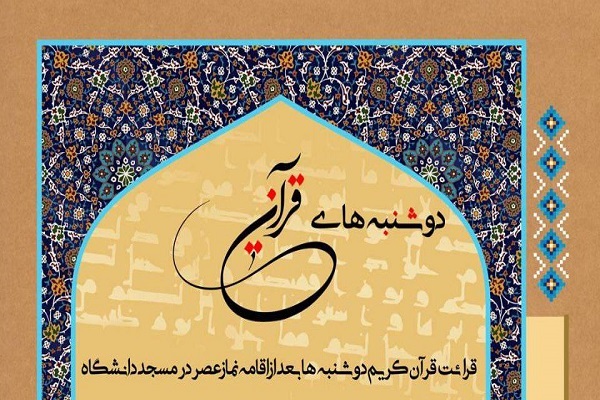 دوشنبه های قرآن
قرائت قرآن کریم دوشنبه ها بعد از اقامه نماز عصر در مسجد دانشگاه